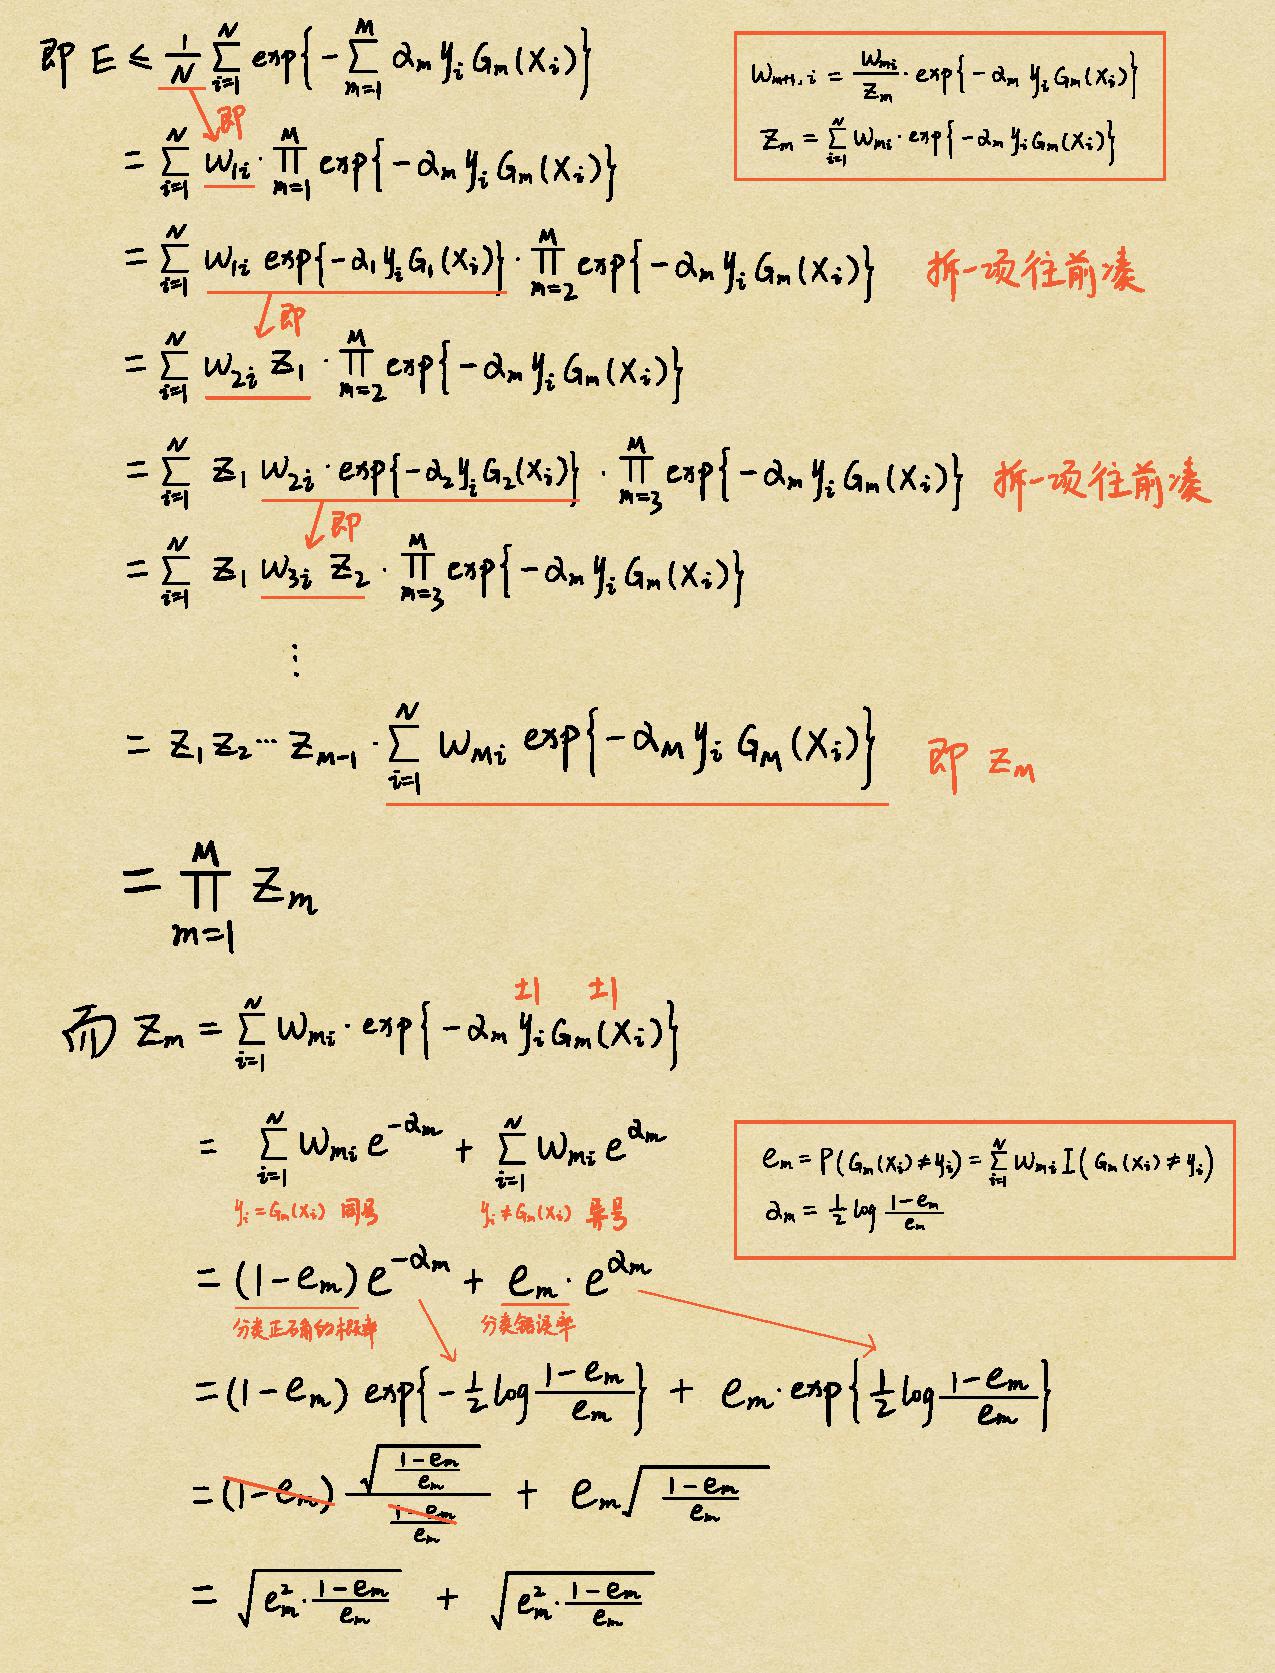 即 E ≤ 1/N ∑_{i=1}^{N} exp{-∑_{m=1}^{M} α_m y_i G_m(x_i)}
w_{m+1,i} = w_{mi}/Z_m · exp{-α_m y_i G_m(x_i)}
Z_m = ∑_{i=1}^{N} w_{mi} · exp{-α_m y_i G_m(x_i)}
即
= ∑_{i=1}^{N} w_{1i} · ∏_{m=1}^{M} exp{-α_m y_i G_m(x_i)}
= ∑_{i=1}^{N} w_{1i} exp{-α_1 y_i G_1(x_i)} · ∏_{m=2}^{M} exp{-α_m y_i G_m(x_i)} 拆一项往前凑
即
= ∑_{i=1}^{N} w_{2i} Z_1 · ∏_{m=2}^{M} exp{-α_m y_i G_m(x_i)}
= ∑_{i=1}^{N} Z_1 w_{2i} · exp{-α_2 y_i G_2(x_i)} · ∏_{m=3}^{M} exp{-α_m y_i G_m(x_i)} 拆一项往前凑
即
= ∑_{i=1}^{N} Z_1 w_{3i} Z_2 · ∏_{m=3}^{M} exp{-α_m y_i G_m(x_i)}
⋮
= Z_1 Z_2 ⋯ Z_{m-1} · ∑_{i=1}^{N} w_{Mi} exp{-α_M y_i G_M(x_i)} 即 Z_m
= ∏_{m=1}^{M} Z_m
±1 ±1
而 Z_m = ∑_{i=1}^{N} w_{mi} · exp{-α_m y_i G_m(x_i)}
= ∑_{i=1}^{N} w_{mi} e^{-α_m} + ∑_{i=1}^{N} w_{mi} e^{α_m}
y_i = G_m(x_i) 同号 y_i ≠ G_m(x_i) 异号
e_m = P(G_m(x_i) ≠ y_i) = ∑_{i=1}^{N} w_{mi} I(G_m(x_i) ≠ y_i)
α_m = 1/2 log (1-e_m)/e_m
= (1-e_m) e^{-α_m} + e_m · e^{α_m}
分类正确的概率 分类错误率
= (1-e_m) exp{-1/2 log (1-e_m)/e_m} + e_m · exp{1/2 log (1-e_m)/e_m}
= (1-e_m) √((1-e_m)/e_m) / ((1-e_m)/e_m) + e_m √((1-e_m)/e_m)
= √(e_m^2 · (1-e_m)/e_m) + √(e_m^2 · (1-e_m)/e_m)